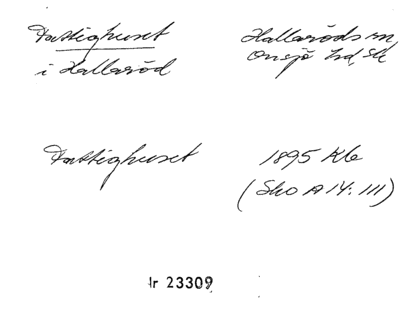 Fattighuset
i Hallaröd
Hallaröds sn
Onsjö hd, Sk
Fattighuset
1895 Kb
(Sko A 14: III)
Nr 23309